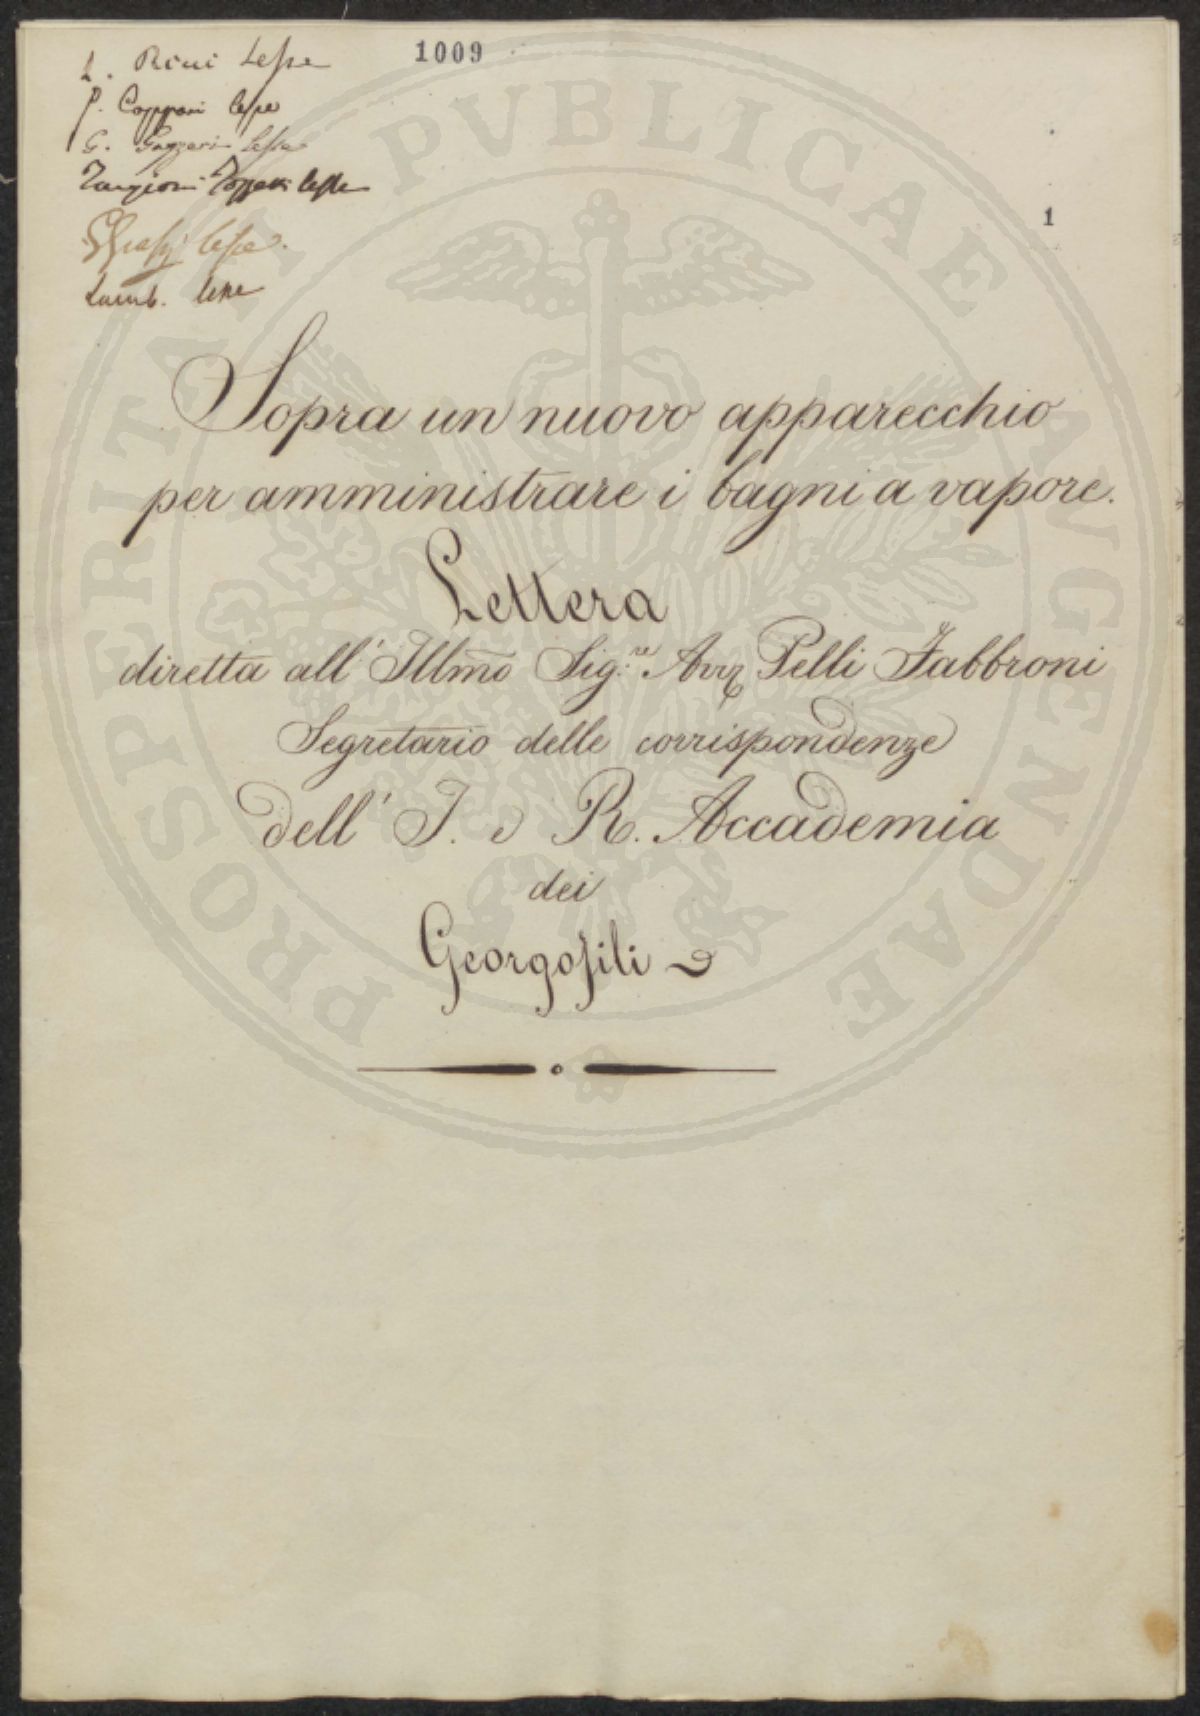 1009
L. Rini lesse
P. lesse
G. Gazzeri lesse
Targioni Tozzetti lesse
lesse.
Lamb. lesse
1
Sopra un nuovo apparecchio
per amministrare i bagni a vapore.
Lettera
diretta all' Illmo Sig.re Avv. Pelli Fabbroni
Segretario delle corrispondenze
dell' I. e R. Accademia
dei
Georgofili
PROSPERITATI PVBLICAE AVGENDAE